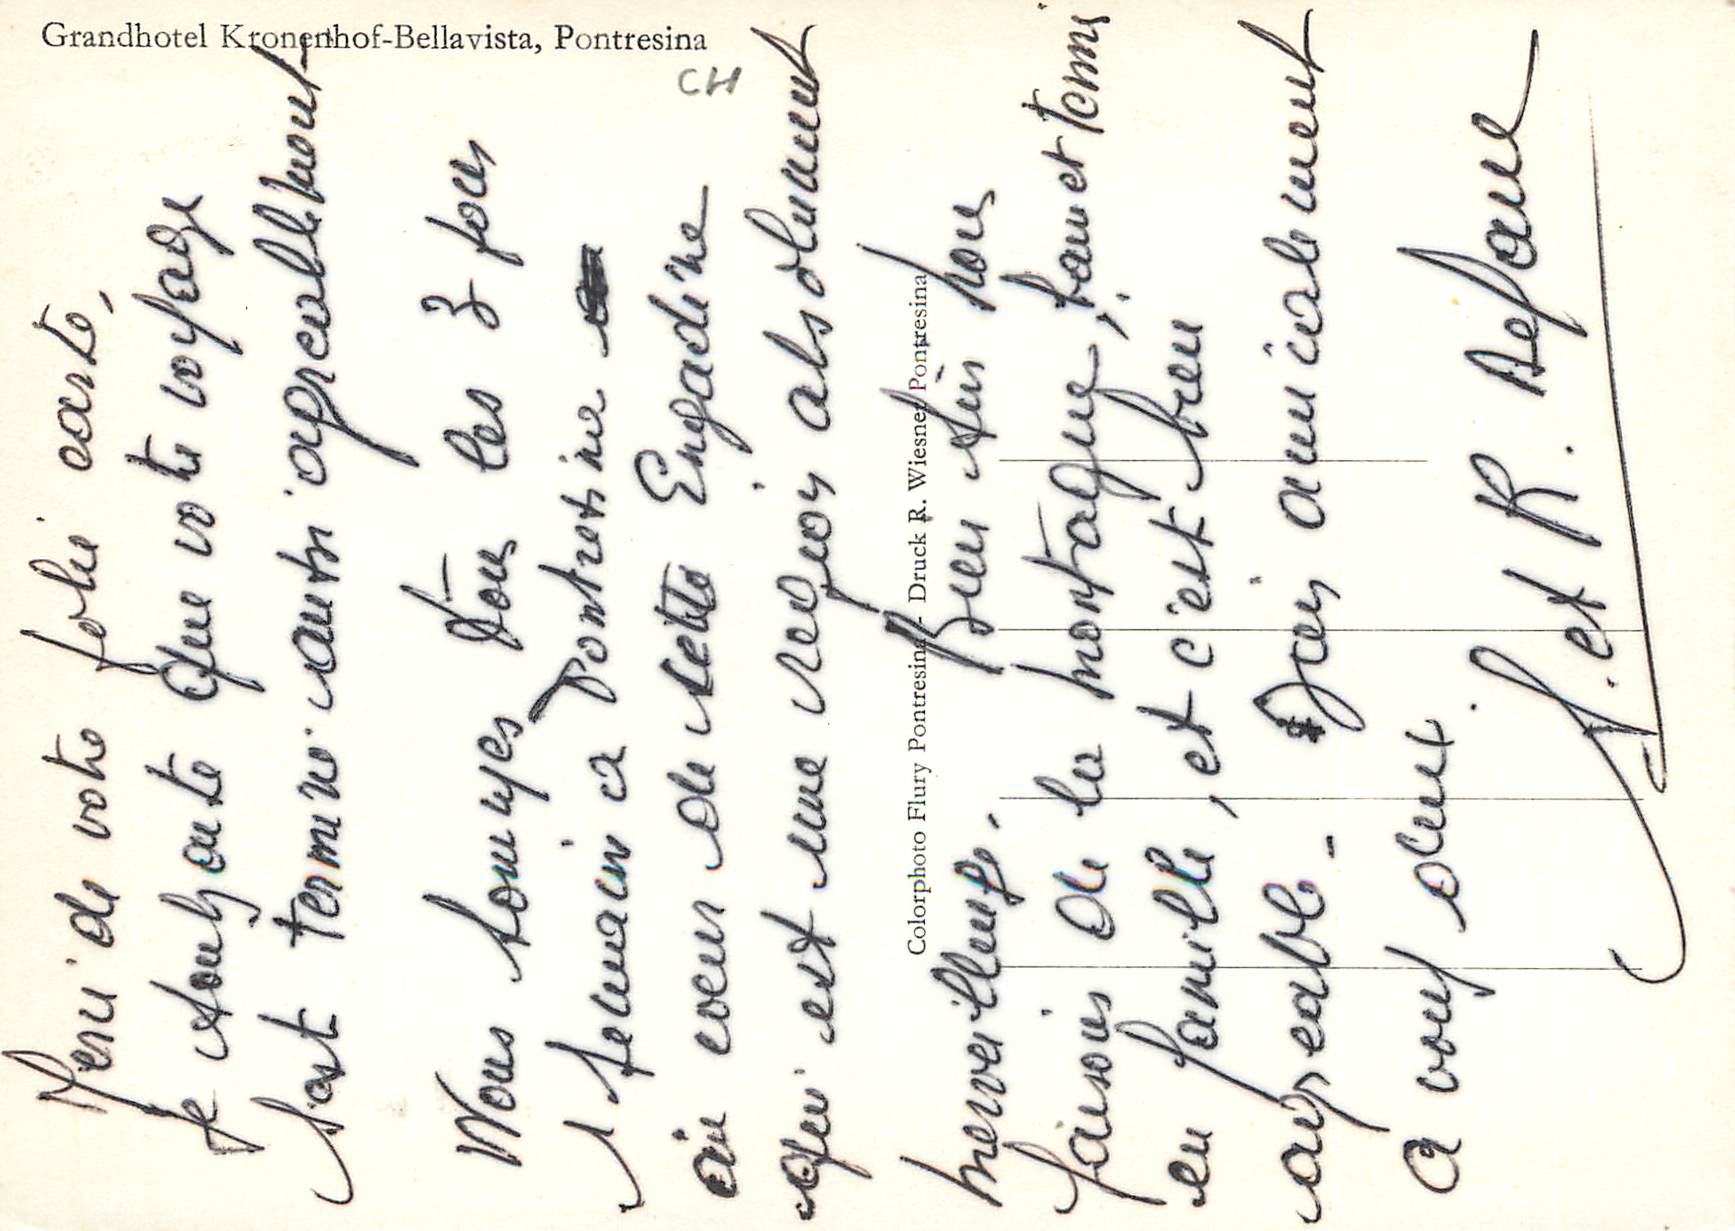 Grandhotel Kronenhof-Bellavista, Pontresina
CH
Merci de votre jolie carte,
je souhaite que votre voyage
soit terminé aussi agréablement
Nous sommes tous les 3 pour
1 semaine à Pontresina
au coeur de cette Engadine
qui est une région absolument
merveilleuse. Bien sûr nous
faisons de la montagne,
en famille, et c'est bien
agréable -
amicalement
à vous deux.
et R.
Colorphoto Flury Pontresina - Druck R. Wiesner Pontresina